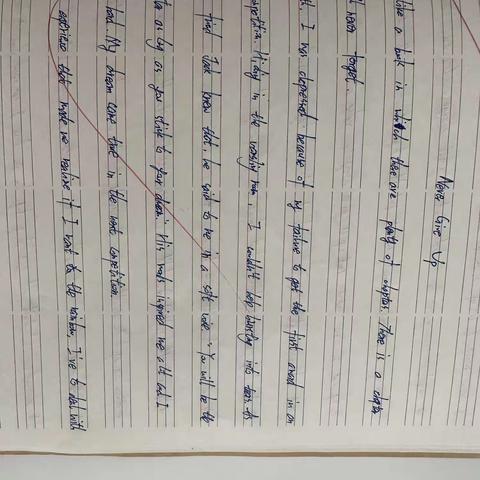 Never Give Up
like a book in which there are plenty of chapters. There is a chapter
never forget.
I was depressed because of my failure to get the first award in an
competition. Hiding in the washing room, I couldn't help bursting into tears. As
friend Jack knew that, he said to me in a soft voice "You will be the
as long as you stick to your dream." His words inspired me a lot and I
hard. My dream came true in the next competition.
experience that made me realise if I want to the rainbow, I've to deal with